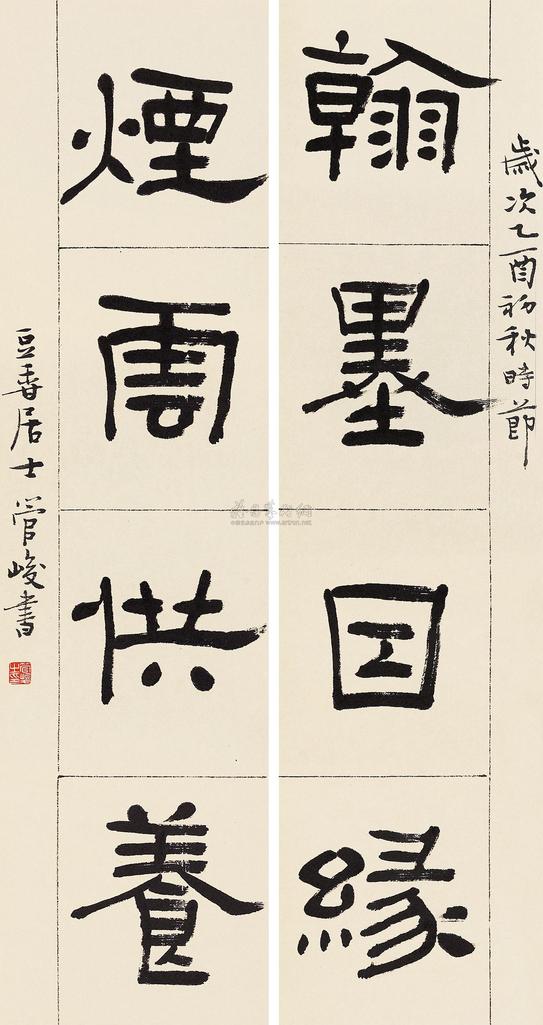 歲次乙酉初秋時節
翰墨因緣
煙雲供養
豆香居士管峻書
www.artron.net